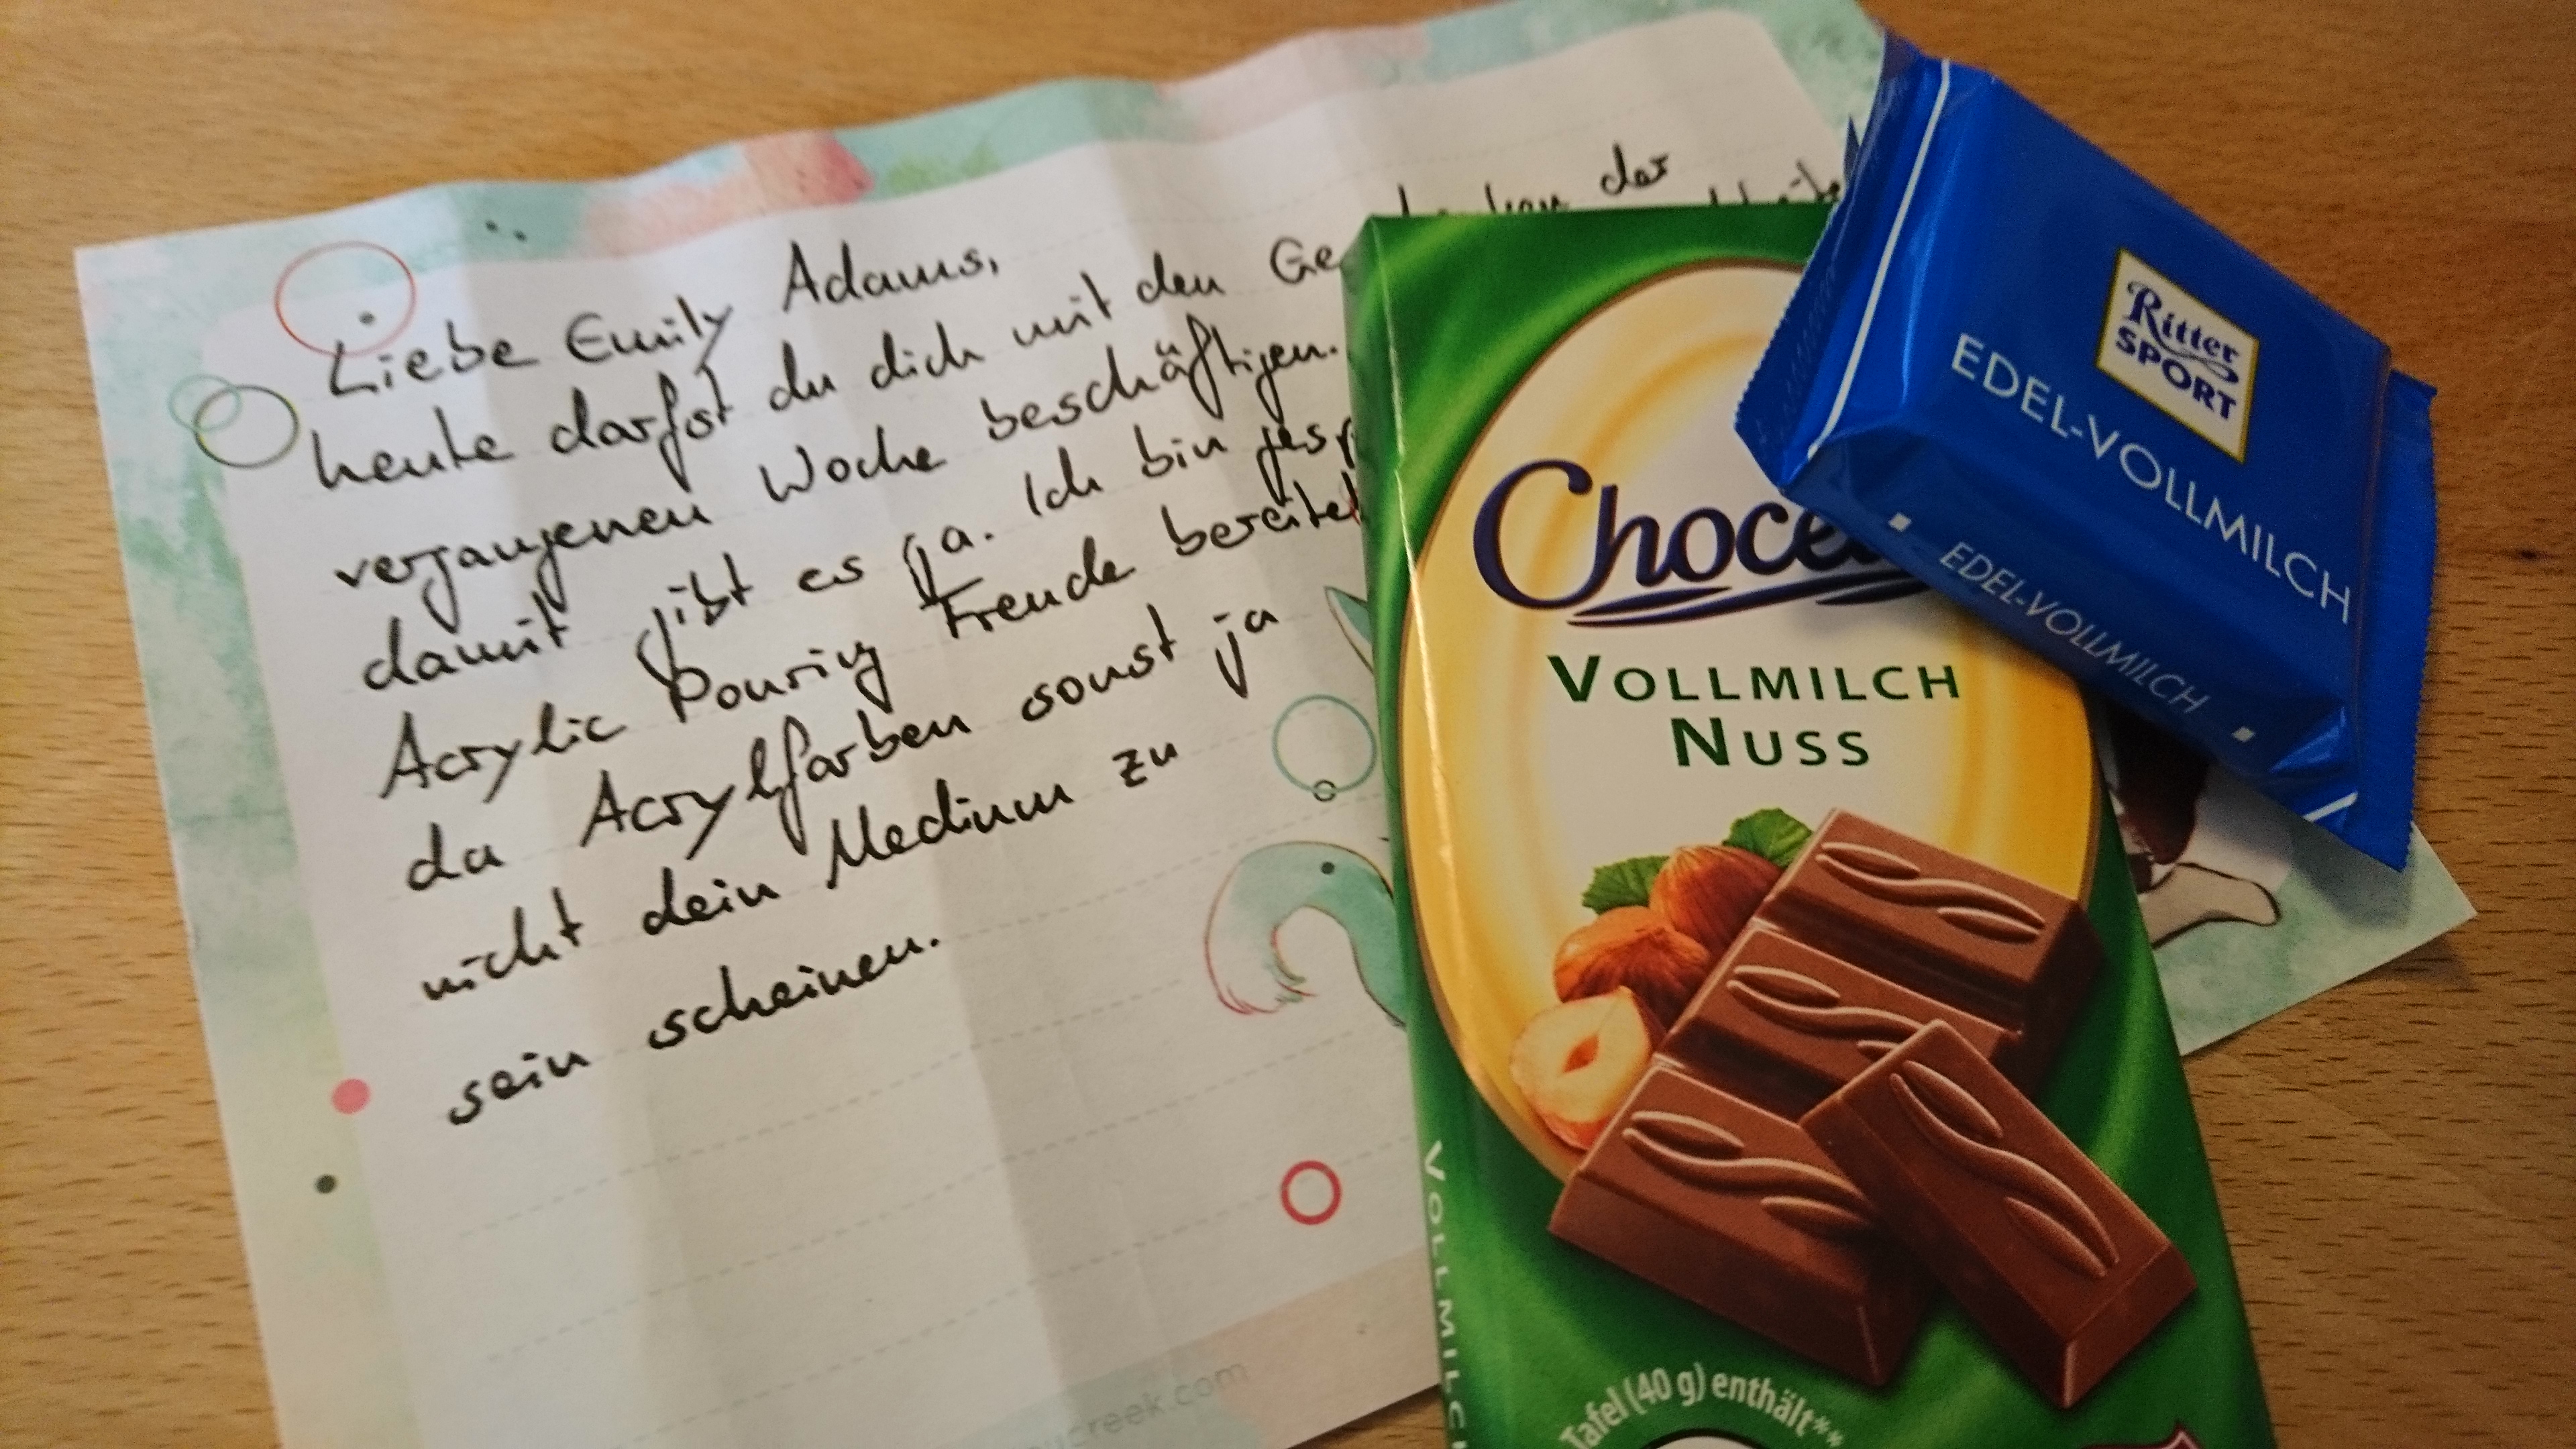 Liebe Emily Adams,
heute darfst du dich mit den Ge der
vergangenen Woche beschäftigen.
damit gibt es ja. Ich bin gesp
Acrylic Pouring Freude bereitet
da Acrylfarben sonst ja
nicht dein Medium zu
sein scheinen.
creek.com
Choce
VOLLMILCH
NUSS
VOLLMILCH
Tafel (40 g) enthält**
Ritter
SPORT
EDEL-VOLLMILCH
EDEL-VOLLMILCH